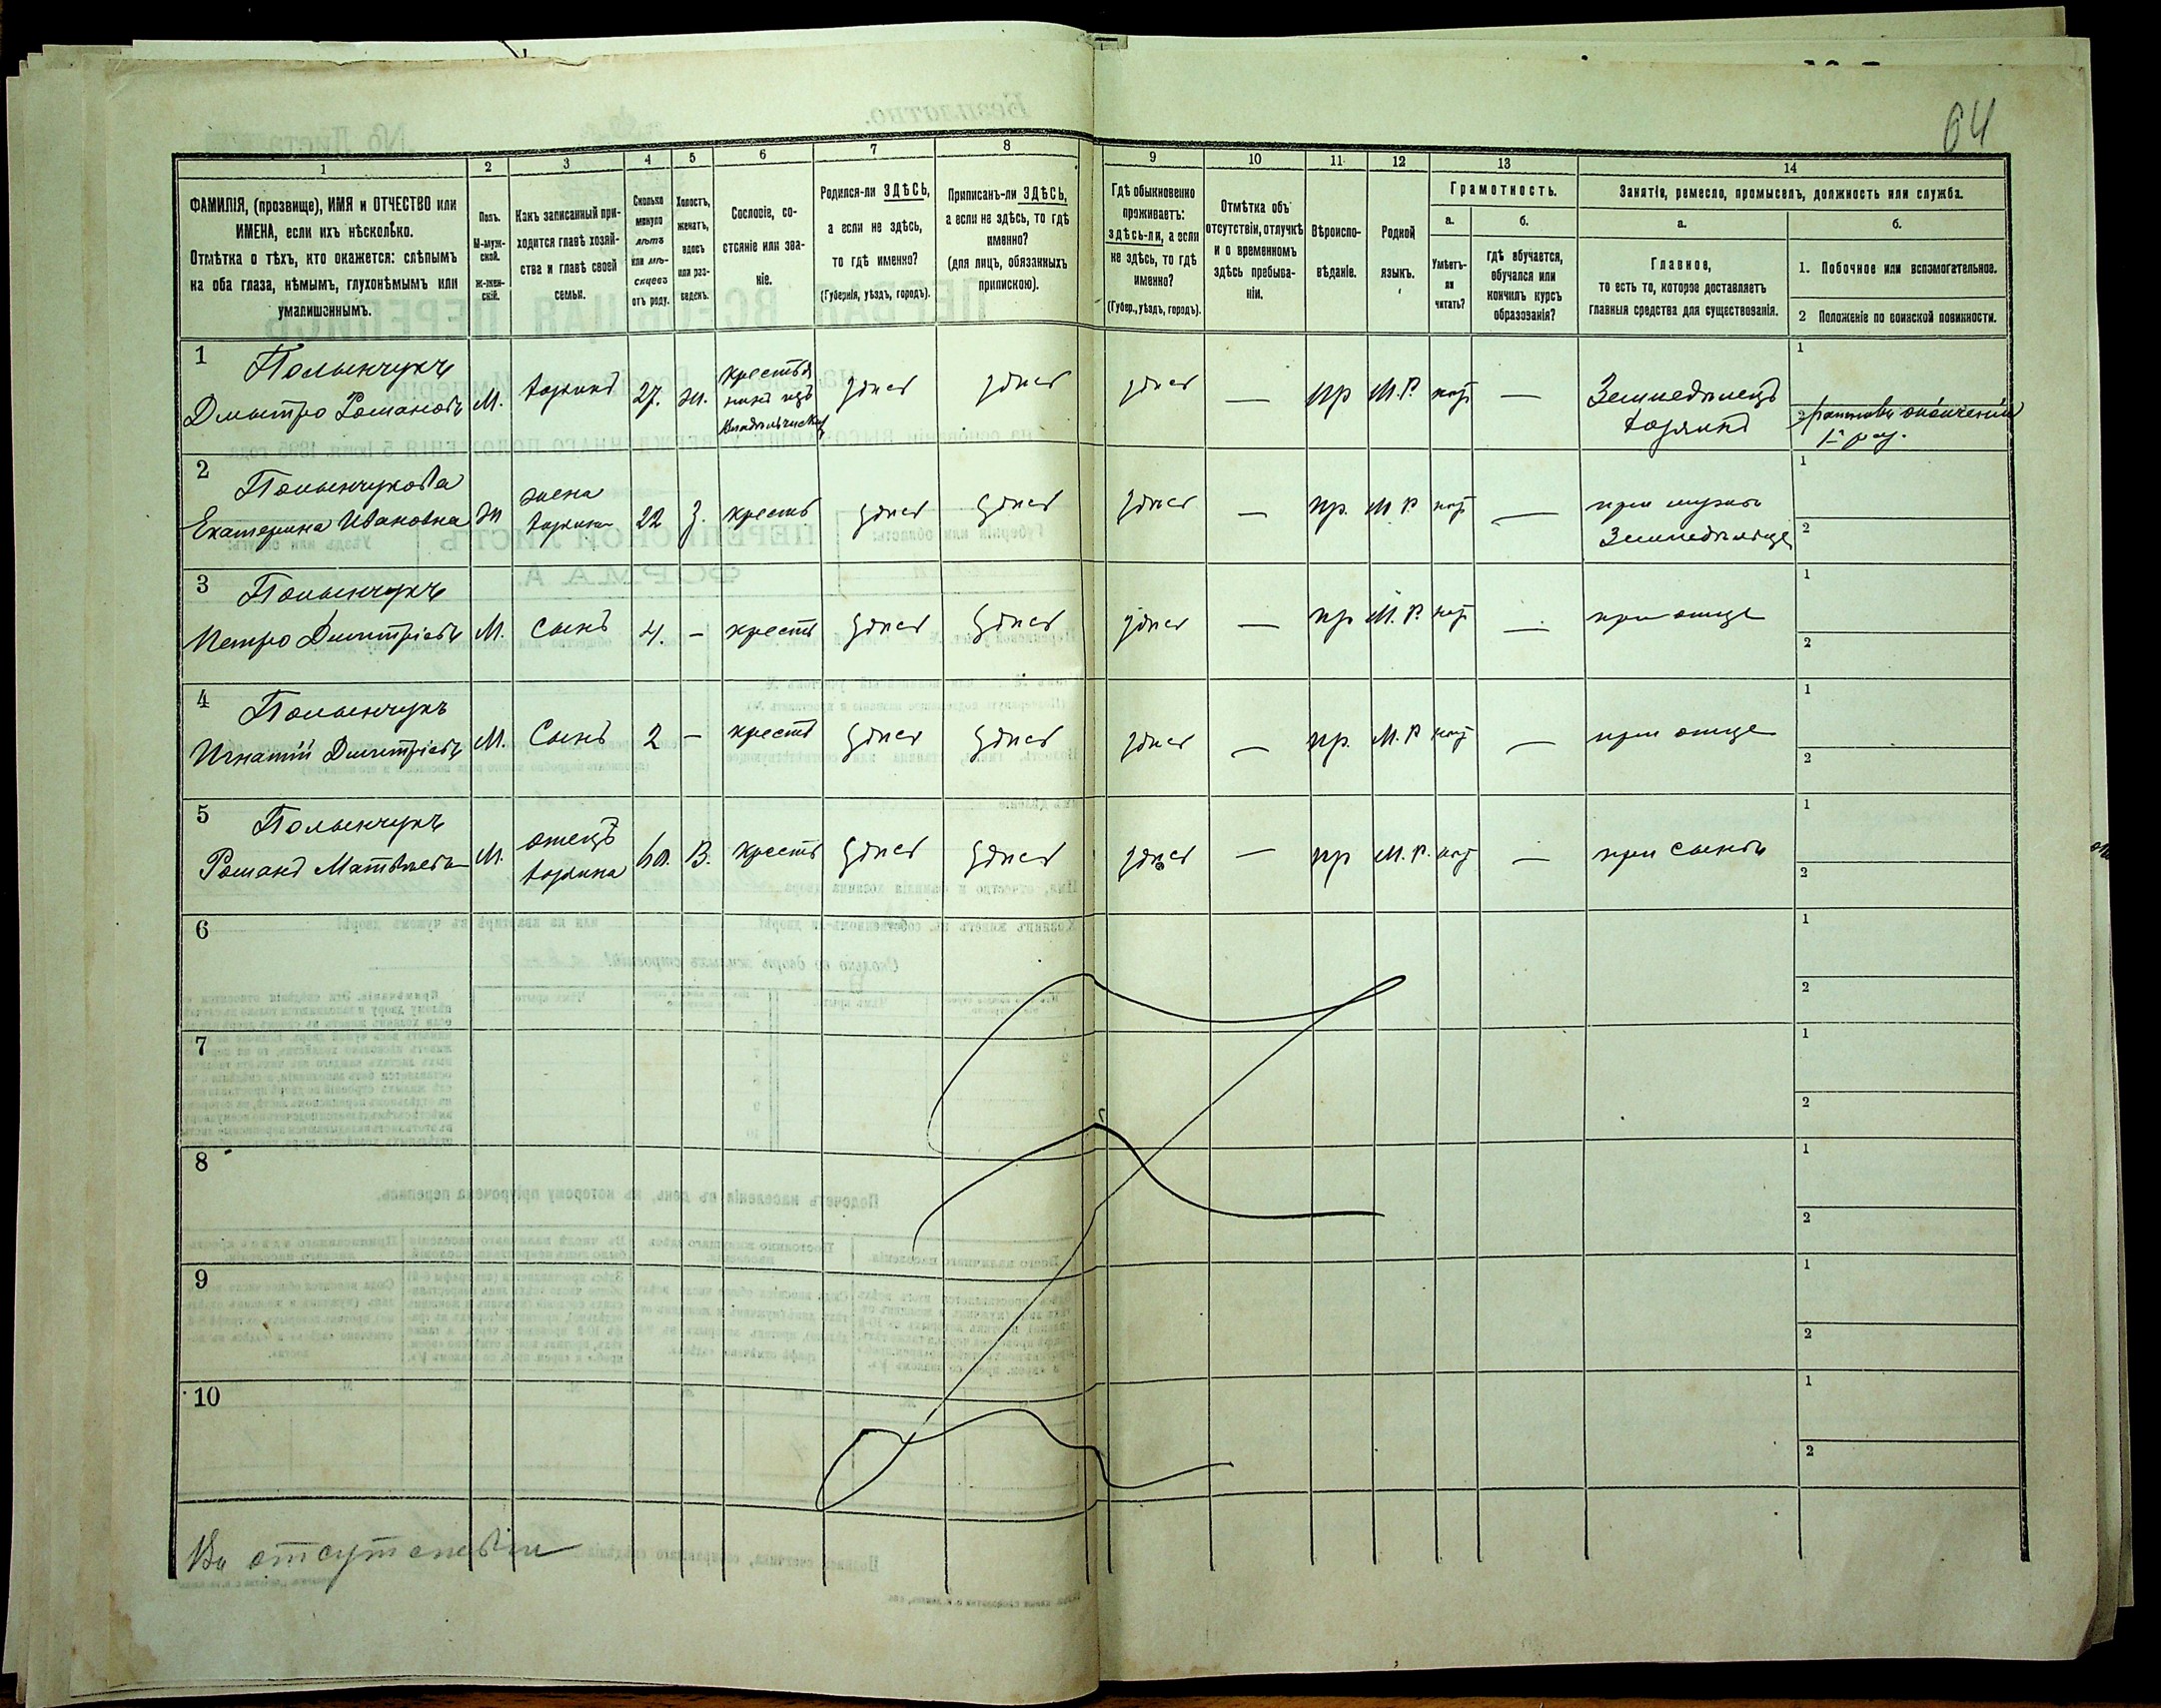 64
1
2
3
4
5
6
7
8
9
10
11
12
13
14
ФАМИЛІЯ, (прозвище), ИМЯ и ОТЧЕСТВО или
ИМЕНА, если ихъ нѣсколько.
Отмѣтка о тѣхъ, кто окажется: слѣпымъ
на оба глаза, нѣмымъ, глухонѣмымъ или
умалишеннымъ.
Полъ.
М-муж-
ской.
Ж-жен-
скій.
Какъ записанный при-
ходится главѣ хозяй-
ства и главѣ своей
семьи.
Сколько
минуло
лѣтъ
или мѣ-
сяцевъ
отъ роду.
Холостъ,
женатъ,
вдовъ
или раз-
веденъ.
Сословіе, со-
стояніе или зва-
ніе.
Родился-ли ЗДѢСЬ,
а если не здѣсь,
то гдѣ именно?
(Губернія, уѣздъ, городъ).
Приписанъ-ли ЗДѢСЬ,
а если не здѣсь, то гдѣ
именно?
(для лицъ, обязанныхъ
припискою).
Гдѣ обыкновенно
проживаетъ:
здѣсь-ли, а если
не здѣсь, то гдѣ
именно?
(Губер., уѣздъ, городъ).
Отмѣтка объ
отсутствіи, отлучкѣ
и о временномъ
здѣсь пребыва-
ніи.
Вѣроиспо-
вѣданіе.
Родной
языкъ.
Грамотность.
а.
Умѣетъ-
ли
читать?
б.
гдѣ обучается,
обучался или
кончилъ курсъ
образованія?
Занятія, ремесло, промыселъ, должность или служба.
а.
Главное,
то есть то, которое доставляетъ
главныя средства для существованія.
б.
1. Побочное или вспомогательное.
2 Положеніе по воинской повинности.
1 Полынчукъ
Дмытро Романовъ М. хозяинъ 27. ж. крестья
нинъ изъ
владѣльческихъ здѣсь здѣсь здѣсь — пр М.Р. нѣт — Земледѣлецъ
хозяинъ
1
2
1 раз.
2 Полынчукова
Екатерина Ивановна ж жена
хозяина 22 З. крестъ здѣсь здѣсь здѣсь — пр. М Р нѣт — при мужѣ
Земледѣльце
1
2
3 Полынчукъ
Петро Дмитріевъ М. Сынъ 4. – крестъ здѣсь здѣсь здѣсь — пр М.Р. нѣт — при отце
1
2
4 Полынчукъ
Игнатій Дмитріевъ М. Сынъ 2 – крестъ здѣсь здѣсь здѣсь — пр. М.Р нѣт — при отце
1
2
5 Полынчукъ
Романъ Матвѣевъ М. отецъ
хозяина 60. В. крестъ здѣсь здѣсь здѣсь — пр М.Р. нѣт — при сынѣ
1
2
6
1
2
7
1
2
8
1
2
9
1
2
10
1
2
Въ отсутствіи